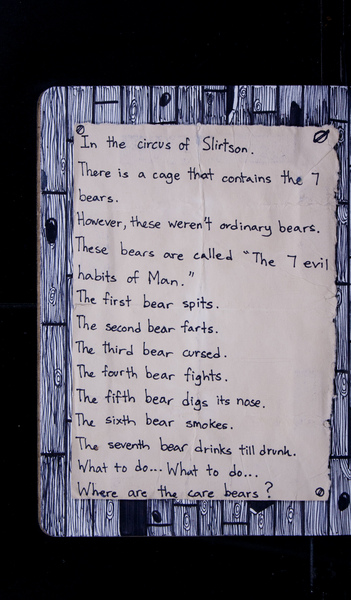 In the circus of Slirtson.
There is a cage that contains the 7
bears.
However, these weren't ordinary bears.
These bears are called "The 7 evil
habits of Man."
The first bear spits.
The second bear farts.
The third bear cursed.
The fourth bear fights.
The fifth bear digs its nose.
The sixth bear smokes.
The seventh bear drinks till drunk.
What to do... What to do...
Where are the care bears?